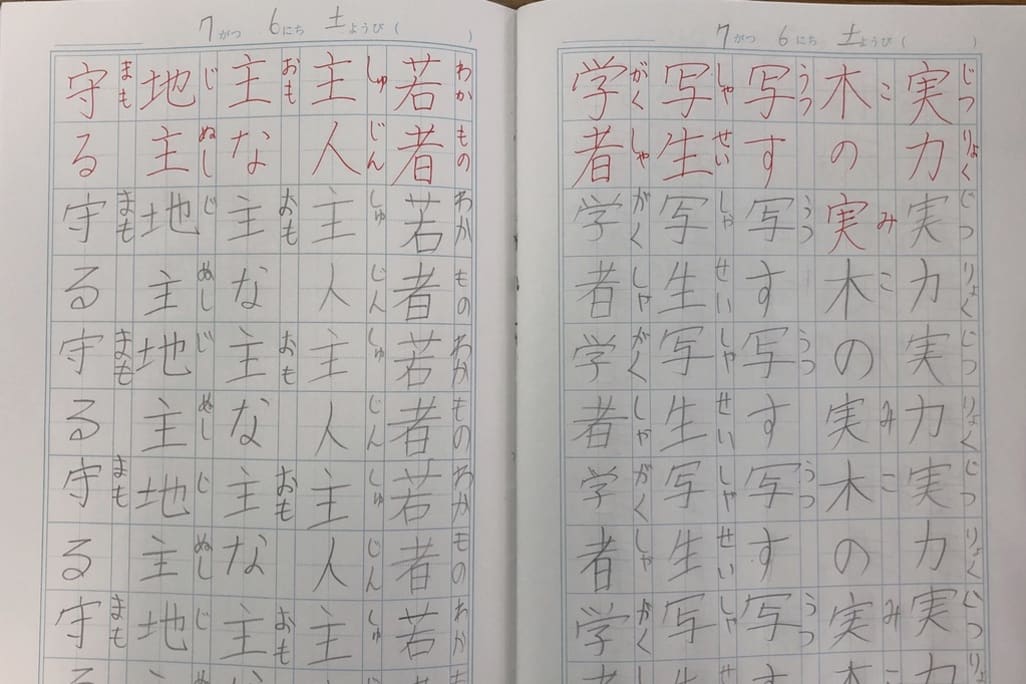 7がつ 6にち 土ようび( )
実力実力実力実力実力
じつりょくじつりょくじつりょくじつりょくじつりょ
木の実木の実木の実木
こみこみこみ
写す写す写す写す写す
うつうつうつうつうつ
写生写生写生写生写生
しゃせいしゃせいしゃせいしゃせいしゃせ
学者学者学者学者学者
がくしゃがくしゃがくしゃがくしゃがくし
7がつ 6にち 土ようび( )
若者若者若者若者若者
わかものわかものわかものわかものわかも
主人主人主人主人主人
しゅじんしゅじんしゅじんしゅじんしゅじ
主な主な主な主な主な
おもおもおもおもおも
地主地主地主地主地主
じぬしじぬしじぬしじぬしじぬ
守る守る守る守る守る
まもまもまもまもまも